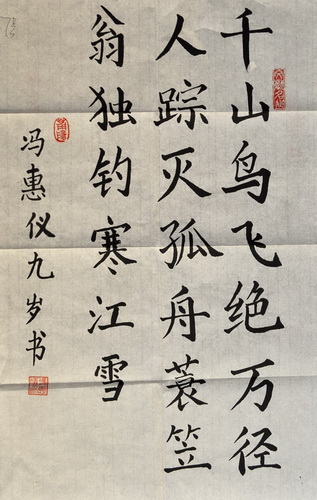 千山鸟飞绝万径
人踪灭孤舟蓑笠
翁独钓寒江雪
冯惠仪九岁书